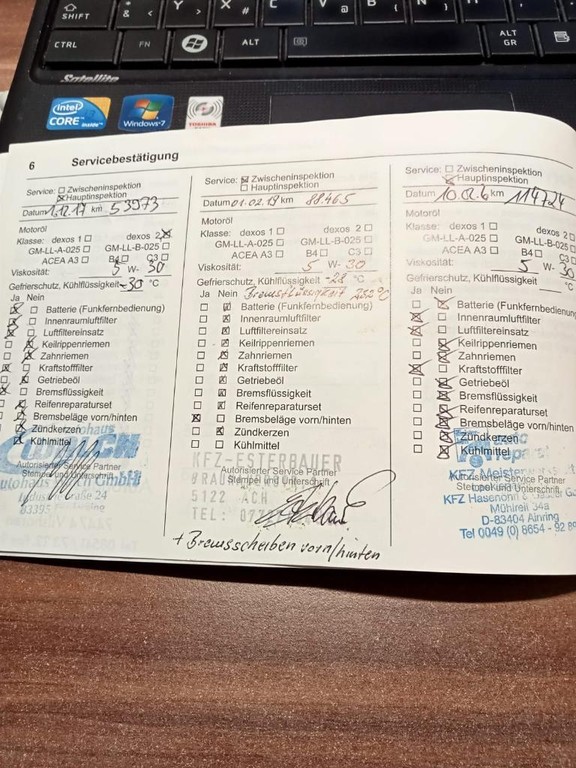 SHIFT
CTRL
FN
ALT
ALT GR
Satellite
intel
CORE inside
Windows 7
TOSHIBA
6 Servicebestätigung
Service: ☐ Zwischeninspektion
☒ Hauptinspektion
Datum 1.12.17 km 53973
Motoröl
Klasse: dexos 1 ☐ dexos 2 ☒
GM-LL-A-025 ☐ GM-LL-B-025 ☐
ACEA A3 ☐ B4 ☐ C3 ☐
Viskosität: 5 W- 30
Gefrierschutz, Kühlflüssigkeit -30 °C
Ja Nein
Batterie (Funkfernbedienung)
Innenraumluftfilter
Luftfiltereinsatz
Keilrippenriemen
Zahnriemen
Kraftstofffilter
Getriebeöl
Bremsflüssigkeit
Reifenreparaturset
Bremsbeläge vorn/hinten
Zündkerzen
Kühlmittel
Autorisierter Service Partner
Stempel und Unterschrift
GmbH
Service: ☒ Zwischeninspektion
☐ Hauptinspektion
Datum 01.02.19 km 88465
Motoröl
Klasse: dexos 1 ☐ dexos 2 ☐
GM-LL-A-025 ☐ GM-LL-B-025 ☐
ACEA A3 ☐ B4 ☐ C3 ☐
Viskosität: 5 W- 30
Gefrierschutz, Kühlflüssigkeit -28 °C
Ja Nein Bremsflüssigkeit
Batterie (Funkfernbedienung)
Innenraumluftfilter
Luftfiltereinsatz
Keilrippenriemen
Zahnriemen
Kraftstofffilter
Getriebeöl
Bremsflüssigkeit
Reifenreparaturset
Bremsbeläge vorn/hinten
Zündkerzen
Kühlmittel
KFZ-ESTERBAUER
Autorisierter Service Partner
Stempel und Unterschrift
5122 ACH
TEL:
+ Bremsscheiben vorn/hinten
Service: ☐ Zwischeninspektion
☒ Hauptinspektion
Datum km 114724
Motoröl
Klasse: dexos 1 ☐ dexos 2 ☐
GM-LL-A-025 ☐ GM-LL-B-025 ☐
ACEA A3 ☐ B4 ☐ C3 ☐
Viskosität: 5 W- 30
Gefrierschutz, Kühlflüssigkeit °C
Ja Nein
Batterie (Funkfernbedienung
Innenraumluftfilter
Luftfiltereinsatz
Keilrippenriemen
Zahnriemen
Kraftstofffilter
Getriebeöl
Bremsflüssigkeit
Reifenreparaturset
Bremsbeläge vorn/hinten
Zündkerzen
Kühlmittel
Autorisierter Service Partner
Stempel und Unterschrift
KFZ Hasenöhrl
Mühlreit 34a
D-83404 Ainring
Tel 0049 (0) 8654 - 92 89